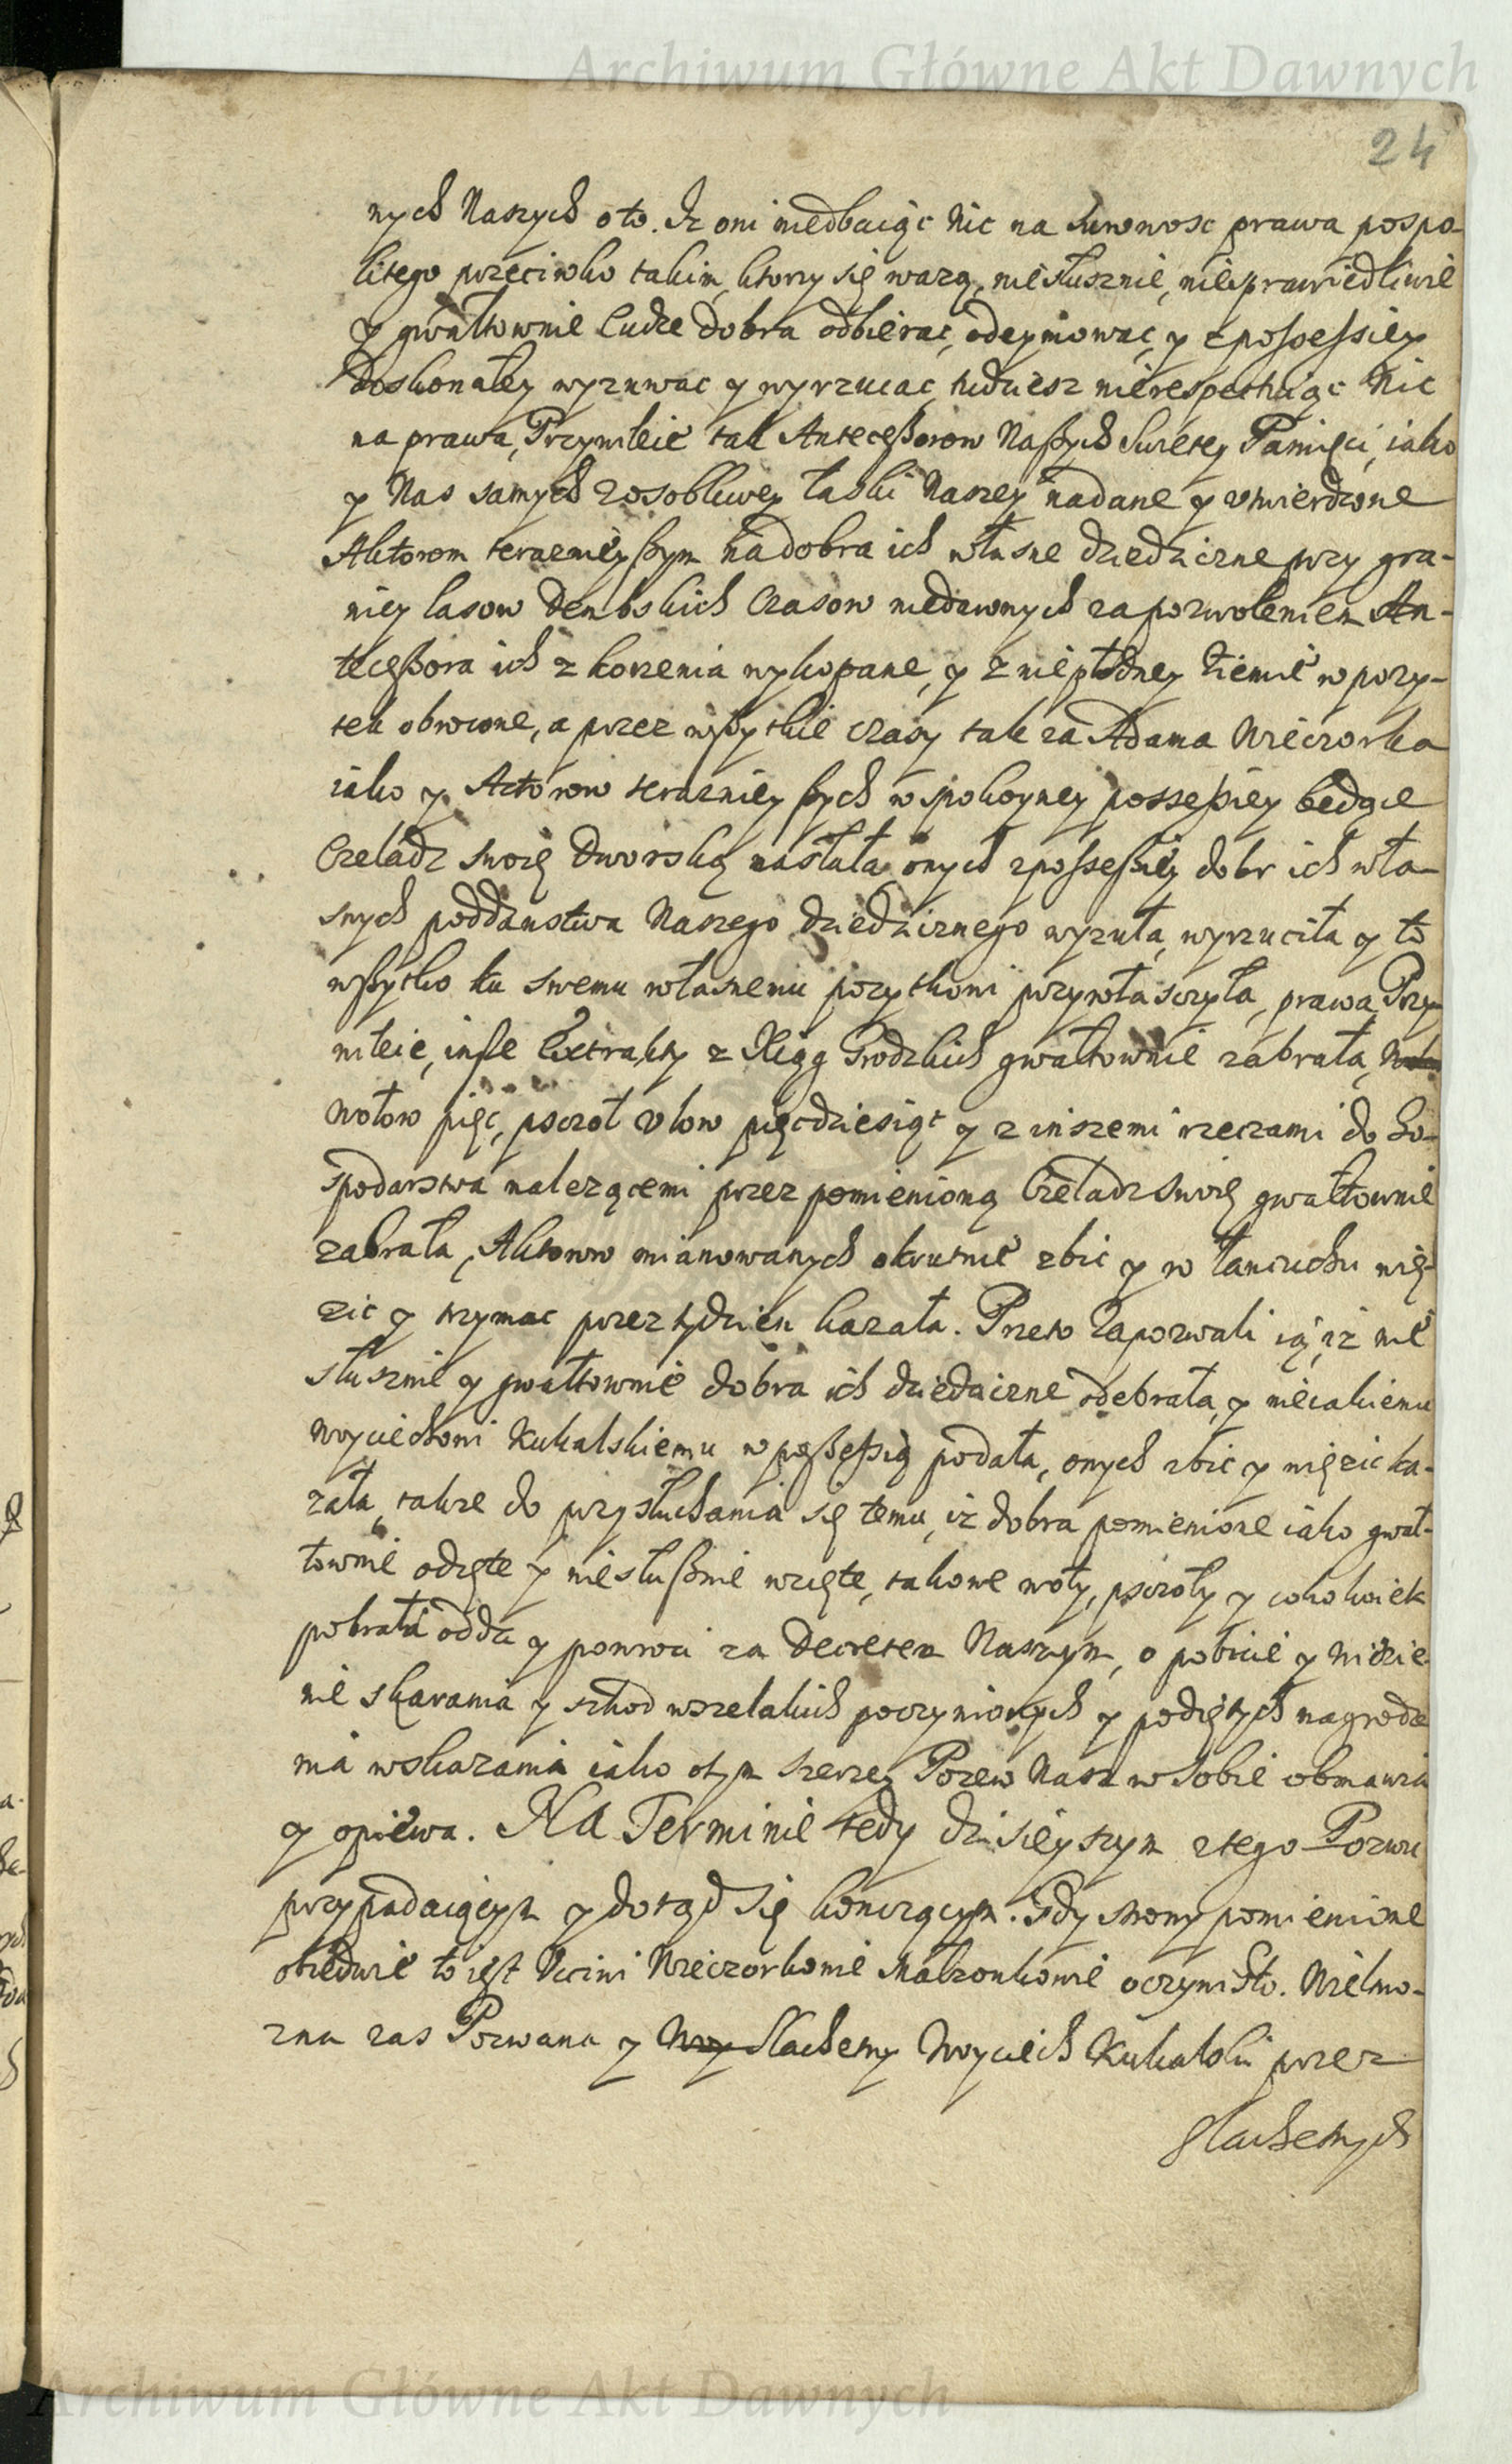 Archiwum Główne Akt Dawnych
24
nych Naszych oto. Iz oni niedbaiąc Nic na surowosc prawa pospo-
litego przeciwko takim, ktorzy się wazą, niesłusznie, niesprawiedliwie
y gwałtownie Cudze Dobra odbierac, odeymowac, y zpossessiey
doskonałey wyzuwac y wyrzucac, tudziesz nierespectuiąc Nic
na prawa, Przywileie tak Antecessorow Naszych Swietey Pamięci, iako
y Nas samych zosobliwey łaski Naszey nadane y stwierdzone
Aktorom teraznieyszym na dobra ich własne dziedziczne przy gra-
nicy lasow Dembskich Czasow niedawnych za pozwoleniem An-
tecessora ich z korzenia wykopane, y z niepłodney Ziemie w pozy-
tek obrocone, a przez wszytkie czasy tak za Adama Wieczorka
iako y Actorow teraznieyszych w spokoyney possessiey będące
Czeladz swoię Dworską nasłała onych zpossessiey dobr ich wła-
snych poddanstwa Naszego dziedzicznego wyzuła, wyrzuciła y to
wszytko ku swemu własnemu pozytkowi przywłasczyła, prawa, Przy-
wileie, insze Extrakty z Xiąg Grodzkich gwałtownie zabrała,
Wołow pięć, psczoł Ulow pięcdziesiąt y z inszemi rzeczami do Go-
spodarstwa nalezącemi przez pomienioną Czeladz swoię gwałtownie
zabrała, Aktorow mianowanych okrutnie zbic y w łancuchu wię-
zic y trzymac przez tydzien kazała. Przeto Zapozwali ią, iz nie
słusznie y gwałtownie dobra ich dziedziczne odebrała, y nieiakiemu
Woyciechowi Kukalskiemu w possessią podała, onych zbic y więzic ka-
zała, takze do przysłuchania się temu, iz dobra pomienione iako gwał-
townie odięte y niesłusznie wzięte, takowe woły, psczoły y cokolwiek
pobrała odda y powroci za Decretem Naszym, o pobicie y wiezie-
nie skarania y szkod wszelakich poczynionych y podiętych nagrodze
nia wskazania iako otym szerzey Pozew Nasz w sobie obmawia
y opiewa. NA Terminie tedy dzisieyszym ztego Pozwu
przypadaiącym y dotąd się konczącym. Gdy strony pomienione
obiedwie to iest Ucciwi Wieczorkowie Małzonkowie oczywisto. Wielmo-
zna zas Pozwana y Szlachetny Woyciech Kukalski przez
Szlachetnych
Archiwum Główne Akt Dawnych